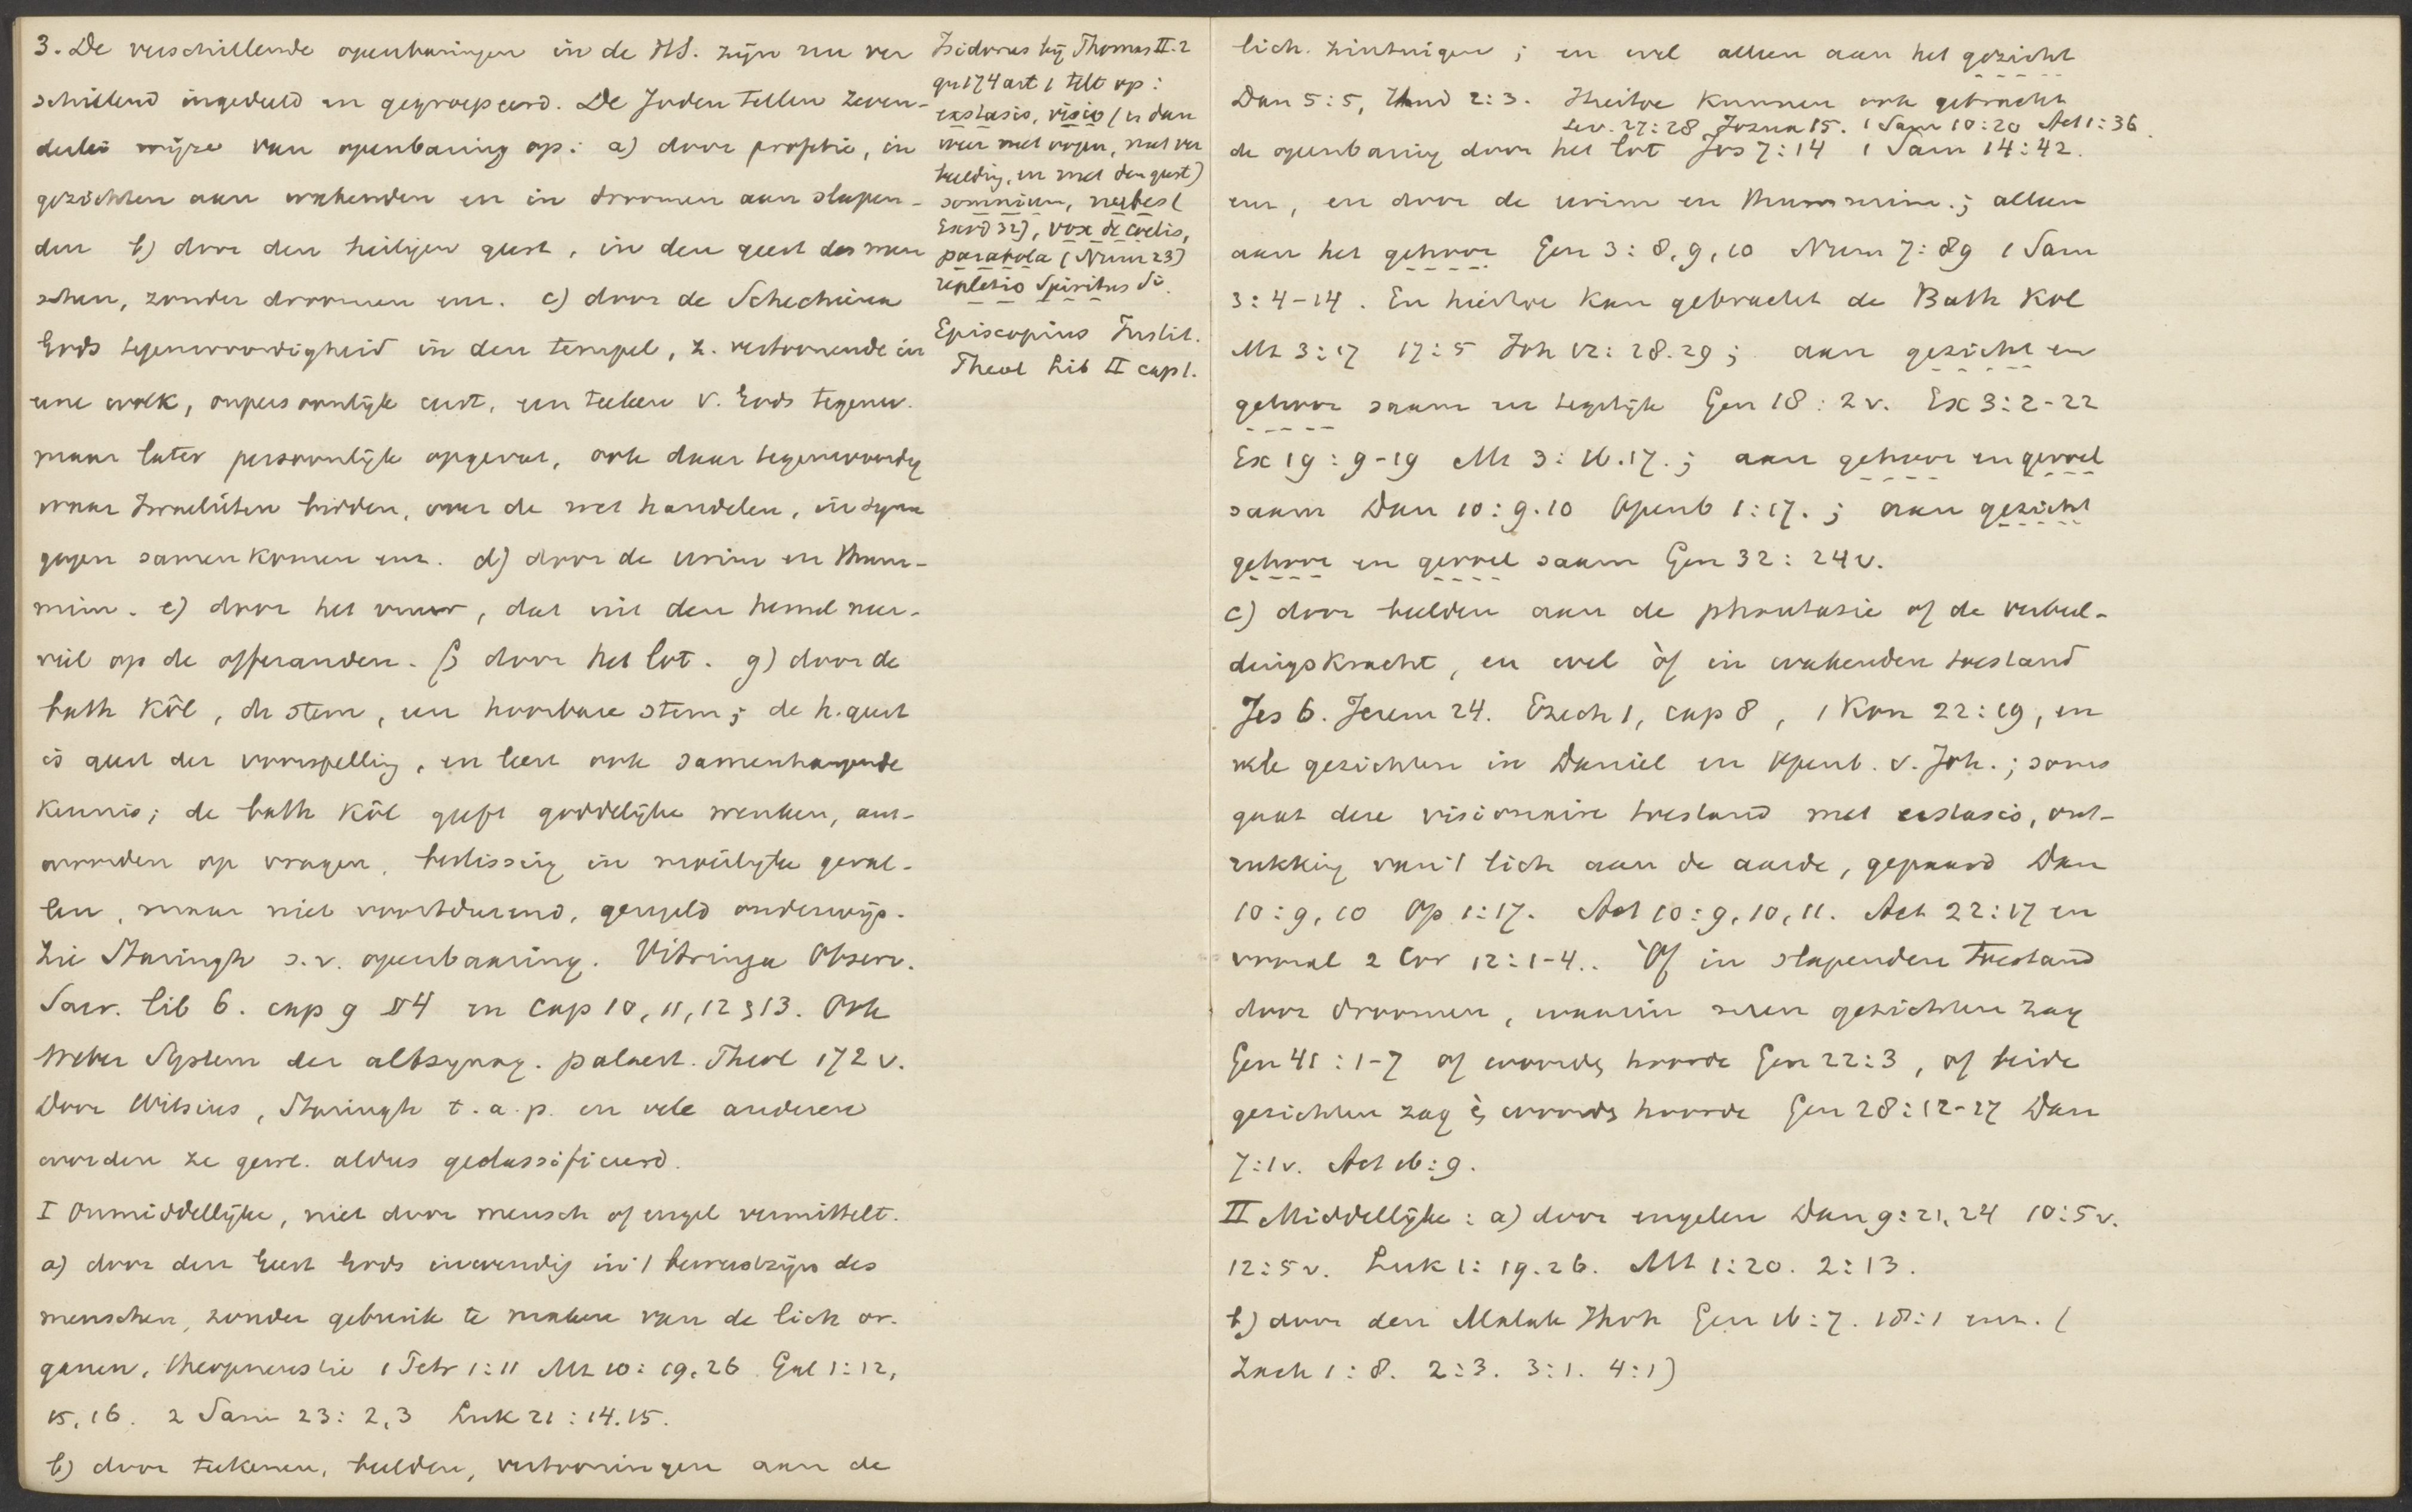 3. De verschillende openbaringen in de HS. zijn nu ver
schillend ingedeeld en gegroepeerd. De Joden tellen zeven-
derlei wijze van openbaring op: a) door profetie, in
gezichten aan wakenden en in droomen aan slapen-
den b) door den heiligen geest, in den geest des men
schen, zonder droomen enz. c) door de Schechina
Gods tegenwoordigheid in den tempel, z. vertoonende in
eene wolk, onpersoonlijk eerst, een teeken v. Gods tegenw.
maar later persoonlijk opgevat, ook daar tegenwoordig
waar Israelieten bidden, over de wet handelen, in syna
gogen samenkomen enz. d) door de urim en thum-
mim. e) door het vuur, dat uit den hemel neer-
viel op de offeranden. f) door het lot. g) door de
bath kôl, de stem, een hoorbare stem; de h. geest
is geest der voorspelling, en leert ook samenhangende
kennis; de bath kôl geeft goddelijke wenken, ant-
woorden op vragen, beslissing in moeilijke geval-
len, maar niet voortdurend, geregeld onderwijs.
Zie Staringh s.v. openbaaring. Vitringa Observ.
Sacr. lib 6. cap 9 § 4 en cap 10, 11, 12 & 13. Ook
Weber System der altsynag. palaest. Theol 172 v.
Door Witsius, Staringh t.a.p. en vele anderen
worden ze gew. aldus geclassificeerd.
I Onmiddellijke, niet door mensch of engel vermittelt.
a) door den Geest Gods inwendig in 't bewustzijn des
menschen, zonder gebruik te maken van de lich or-
ganen, theopneustie 1 Petr 1:11 Mt 10: 19.26 Gal 1:12,
15, 16. 2 Sam 23: 2,3 Luk 21: 14.15.
b) door teekenen, beelden, vertooningen aan de
Isidorus bij Thomas II.2
qu 174 art 1 telt op:
exstasis, visio (en dan
weer met oogen, met ver
beelding, en met den geest)
somnium, nubes (
Exod 32), vox de coelis,
parabola (Num 23)
repletio Spiritus Si.
Episcopius Instit.
Theol Lib II cap 1.
lich. zintuigen; en wel alleen aan het gezicht
Dan 5:5, Hand 2:3. Hiertoe kunnen ook gebracht
Lev. 27:28 Jozua 15. 1 Sam 10:20 Act 1:36.
de openbaring door het lot Jos 7:14 1 Sam 14:42.
enz, en door de urim en thummim.; alleen
aan het gehoor Gen 3: 8, 9, 10 Num 7: 89 1 Sam
3: 4-14. En hiertoe kan gebracht de Bath Kol
Mt 3:17 17:5 Joh 12: 28.29; aan gezicht en
gehoor saam en tegelijk Gen 18: 2v. Ex 3: 2-22
Ex 19: 9-19 Mt 3: 16.17.; aan gehoor en gevoel
saam Dan 10: 9.10 Openb 1:17.; aan gezicht
gehoor en gevoel saam Gen 32: 24v.
c) door beelden aan de phantasie of de verbeel-
dingskracht, en wel òf in wakenden toestand
Jes 6. Jerem 24. Ezech 1, cap 8, 1 Kon 22:19, en
vele gezichten in Daniel en Openb. v. Joh.; soms
gaat deze visionaire toestand met exstasis, ont-
rukking van 't lich aan de aarde, gepaard Dan
10: 9, 10 Op 1:17. Act 10: 9, 10, 11. Act 22:17 en
vooral 2 Cor 12: 1-4. Òf in slapenden toestand
door droomen, waarin men gezichten zag
Gen 41: 1-7 of woorden hoorde Gen 22:3, of beide
gezichten zag en woorden hoorde Gen 28: 12-27 Dan
7:1v. Act 16:9.
II Middellijke: a) door engelen Dan 9: 21, 24 10:5v.
12:5v. Luk 1: 19.26. Mt 1:20. 2:13.
b) door den Malak Jhvh Gen 16:7. 18:1 enz. (
Zach 1: 8. 2:3. 3:1. 4:1)